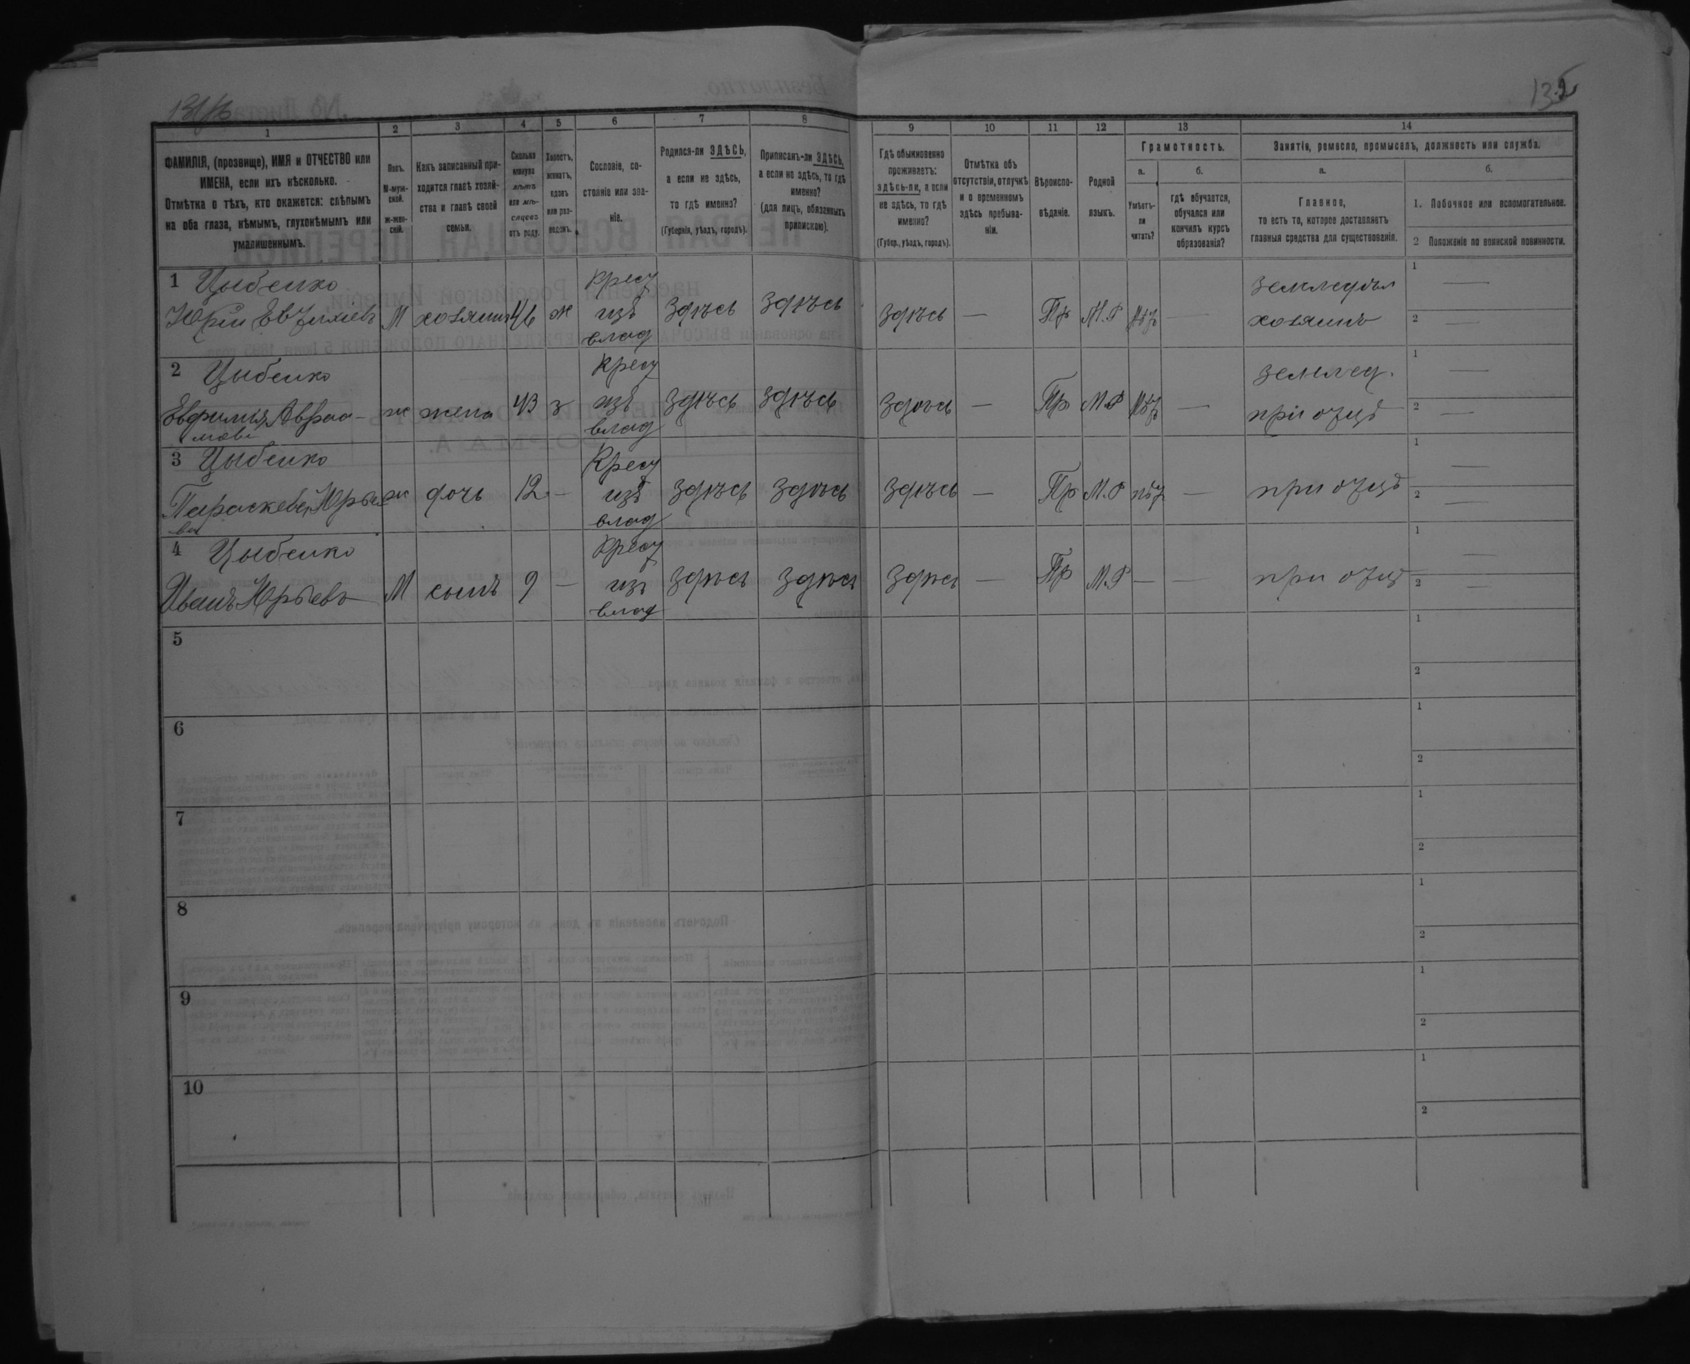 135
1
2
3
4
5
6
7
8
9
10
11
12
13
14
ФАМИЛІЯ, (прозвище), ИМЯ и ОТЧЕСТВО или
ИМЕНА, если ихъ нѣсколько.
Отмѣтка о тѣхъ, кто окажется: слѣпымъ
на оба глаза, нѣмымъ, глухонѣмымъ или
умалишеннымъ.
Полъ.
М-муж-
ской.
Ж-жен-
скій.
Какъ записанный при-
ходится главѣ хозяй-
ства и главѣ своей
семьи.
Сколько
минуло
лѣтъ
или мѣ-
сяцевъ
отъ роду.
Холостъ,
женатъ,
вдовъ
или раз-
веденъ.
Сословіе, со-
стояніе или зва-
ніе.
Родился-ли ЗДѢСЬ,
а если не здѣсь,
то гдѣ именно?
(Губернія, уѣздъ, городъ).
Приписанъ-ли ЗДѢСЬ,
а если не здѣсь, то гдѣ
именно?
(для лицъ, обязанныхъ
припискою).
Гдѣ обыкновенно
проживаетъ:
здѣсь-ли, а если
не здѣсь, то гдѣ
именно?
(Губер., уѣздъ, городъ).
Отмѣтка объ
отсутствіи, отлучкѣ
и о временномъ
здѣсь пребыва-
ніи.
Вѣроиспо-
вѣданіе.
Родной
языкъ.
Грамотность.
а.
Умѣетъ-
ли
читать?
б.
гдѣ обучается,
обучался или
кончилъ курсъ
образованія?
Занятія, ремесло, промыселъ, должность или служба.
а.
Главное,
то есть то, которое доставляетъ
главныя средства для существованія.
б.
1. Побочное или вспомогательное.
2 Положеніе по воинской повинности.
1 Цыбенко
Юрій Евтихіевъ М хозяинъ 46 ж Крест изъ влад здѣсь здѣсь здѣсь — Пр М.Р нѣт — земледѣл хозяинъ 1 — 2 —
2 Цыбенко
Евфимія Авраа-
мова ж жена 43 з Крест изъ влад здѣсь здѣсь здѣсь — Пр М.Р нѣт — землед. при отцѣ 1 — 2 —
3 Цыбенко
Параскева Юрье
ва ж дочь 12 — Крест изъ влад здѣсь здѣсь здѣсь — Пр М.Р нѣт — при отцѣ 1 — 2 —
4 Цыбенко
Иванъ Юрьевъ М сынъ 9 — Крест изъ влад здѣсь здѣсь здѣсь — Пр М.Р — — при отцѣ 1 — 2 —
5 1 2
6 1 2
7 1 2
8 1 2
9 1 2
10 1 2